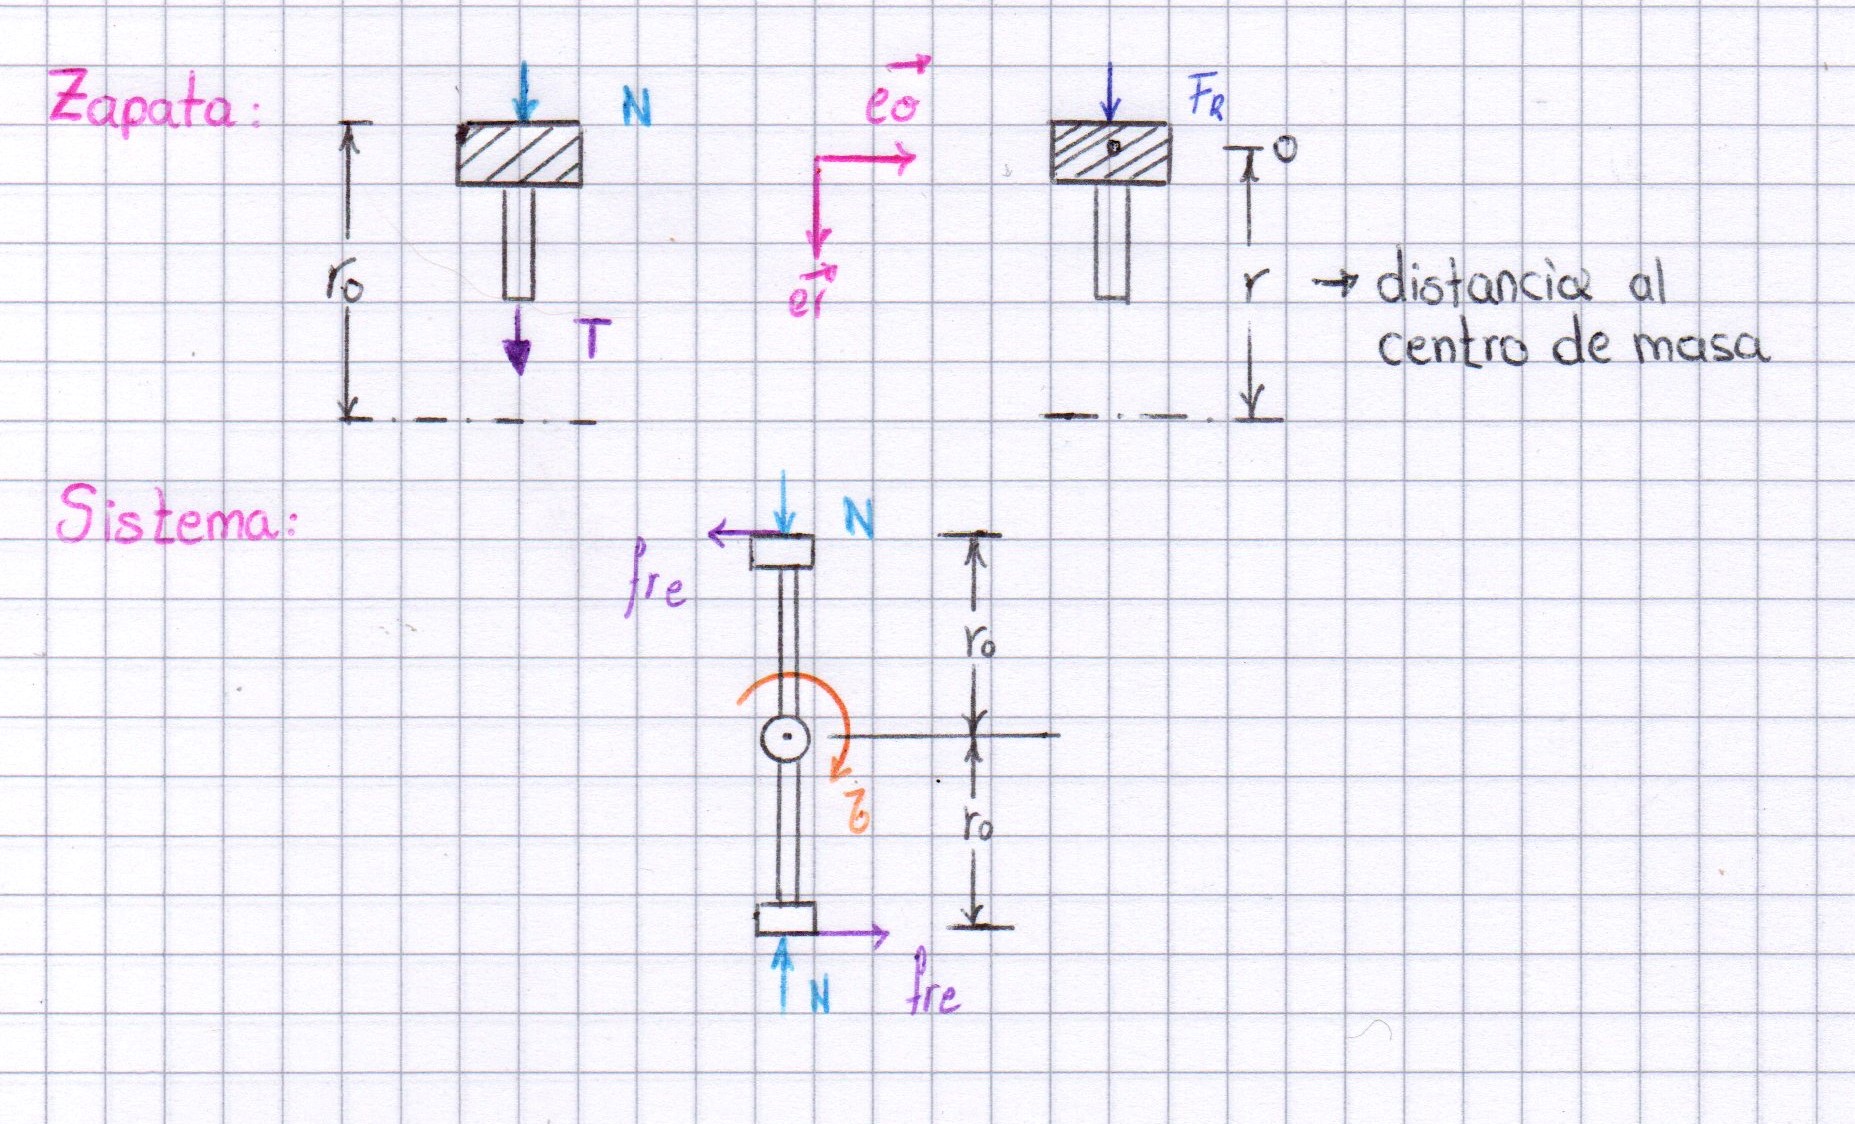 Zapata:
N
eθ
FR
O
r₀
er
T
r → distancia al
centro de masa
Sistema:
N
fre
r₀
τ
r₀
N
fre